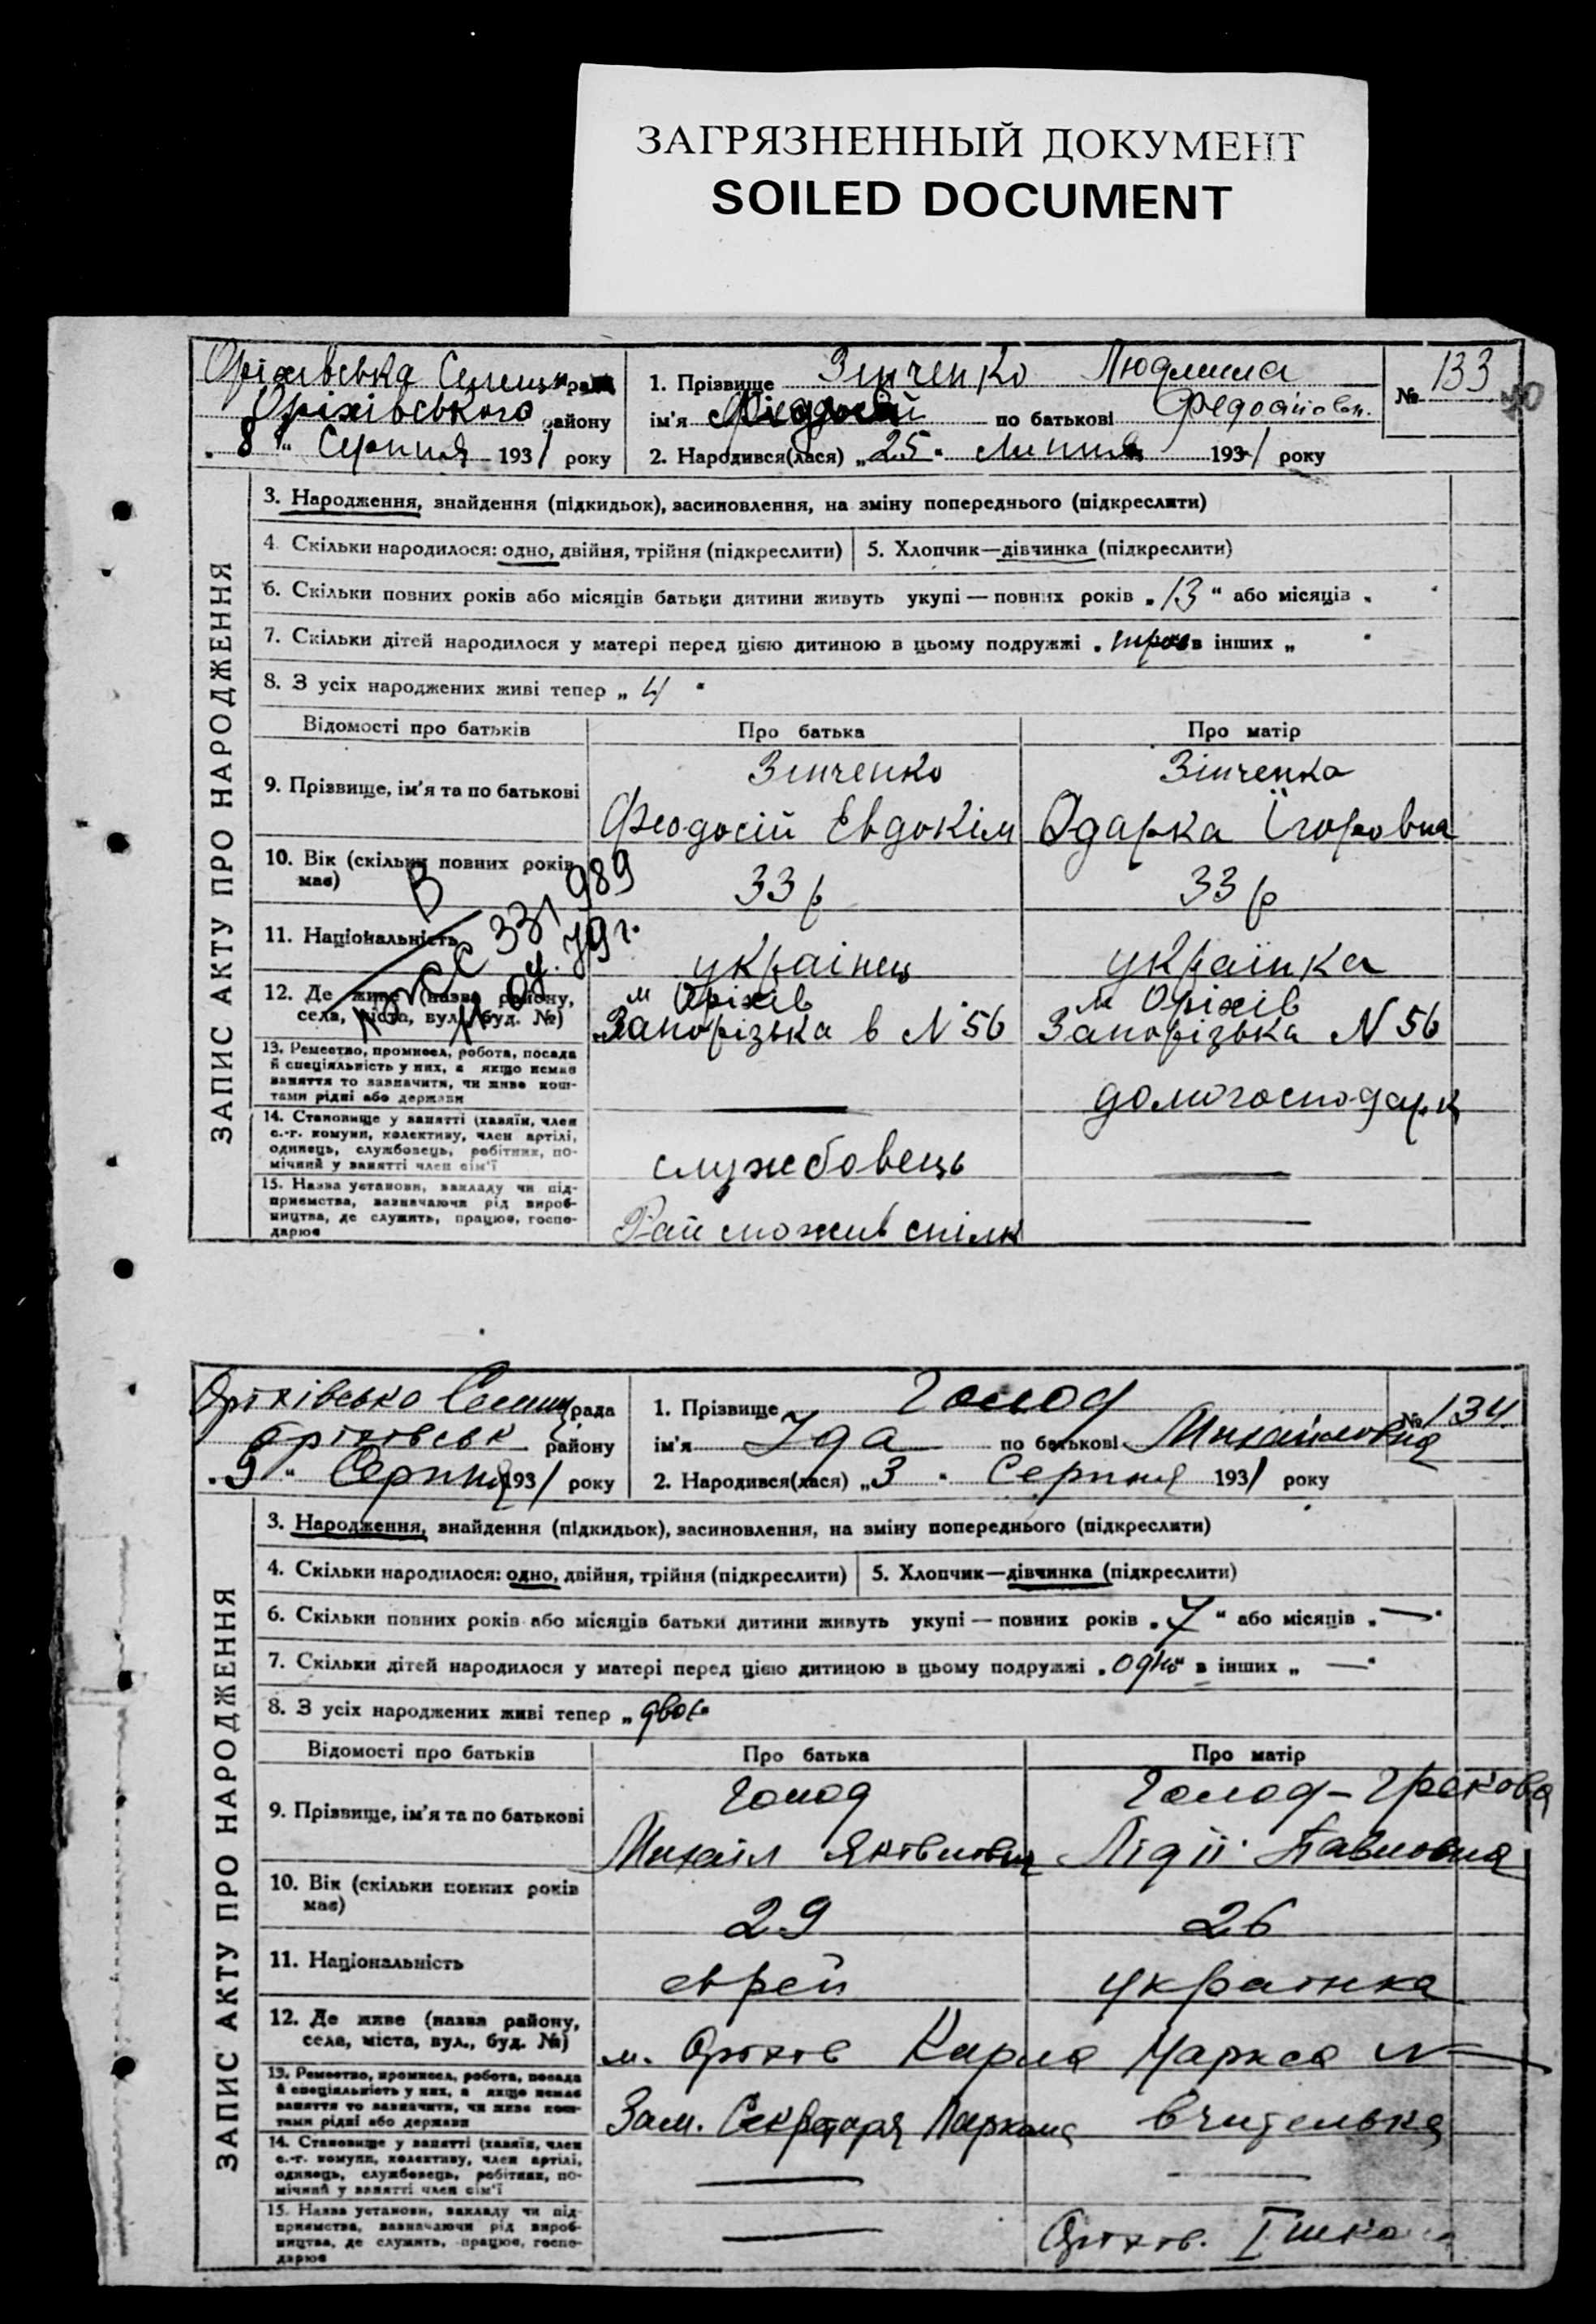 ЗАГРЯЗНЕННЫЙ ДОКУМЕНТ
SOILED DOCUMENT
Оріхівська Селищн рада
Оріхівського району
„8“ Серпня 1931 року
1. Прізвище Зінченко Людмила
ім'я по батькові Федосіївн.
2. Народився(лася) „25“ Липня 1931 року
№ 133
ЗАПИС АКТУ ПРО НАРОДЖЕННЯ
3. Народження, знайдення (підкидьок), засиновлення, на зміну попереднього (підкреслити)
4. Скільки народилося: одно, двійня, трійня (підкреслити) 5. Хлопчик—дівчинка (підкреслити)
6. Скільки повних років або місяців батьки дитини живуть укупі — повних років „13“ або місяців „ “
7. Скільки дітей народилося у матері перед цією дитиною в цьому подружжі „троє в інших „ “
8. З усіх народжених живі тепер „4“
Відомості про батьків Про батька Про матір
9. Прізвище, ім'я та по батькові
Зінченко Зінченко
Феодосій Евдокім Одарка Ігоровна
10. Вік (скільки повних років має)
33 р 33 р
11. Національність
українець українка
12. Де живе (назва району, села, міста, вул., буд. №)
м Оріхів м Оріхів
Запорізька в N 56 Запорізька N 56
13. Ремество, промисел, робота, посада й спеціяльність у них, а якщо немає заняття то зазначити, чи живе коштами рідні або держави
— домогосподарк
14. Становище у занятті (хазяїн, член с.-г. комуни, колективу, член артілі, одинець, службовець, робітник, помічний у занятті член сім'ї
службовець —
15. Назва установи, закладу чи підприємства, зазначаючи рід виробництва, де служить, працює, господарює
Рай спожив спілк —
331989
Оріхівсько Селищ рада
Оріхівськ району
„9“ Серпня 1931 року
1. Прізвище Голод
ім'я Іда по батькові Михайловна
2. Народився(лася) „3“ Серпня 1931 року
№ 134
ЗАПИС АКТУ ПРО НАРОДЖЕННЯ
3. Народження, знайдення (підкидьок), засиновлення, на зміну попереднього (підкреслити)
4. Скільки народилося: одно, двійня, трійня (підкреслити) 5. Хлопчик—дівчинка (підкреслити)
6. Скільки повних років або місяців батьки дитини живуть укупі — повних років „7“ або місяців „—“
7. Скільки дітей народилося у матері перед цією дитиною в цьому подружжі „одно“ в інших „—“
8. З усіх народжених живі тепер „двоє“
Відомості про батьків Про батька Про матір
9. Прізвище, ім'я та по батькові
Голод Голод-Грекова
Михаіл Яківлович Лідіі Павловна
10. Вік (скільки повних років має)
29 26
11. Національність
еврей українка
12. Де живе (назва району, села, міста, вул., буд. №)
м. Оріхів Карла Маркса N —
13. Ремество, промисел, робота, посада й спеціяльність у них, а якщо немає заняття то зазначити, чи живе коштами рідні або держави
Зам. Секретаря Паркома вчителька
14. Становище у занятті (хазяїн, член с.-г. комуни, колективу, член артілі, одинець, службовець, робітник, помічний у занятті член сім'ї
— —
15. Назва установи, закладу чи підприємства, зазначаючи рід виробництва, де служить, працює, господарює
— Оріхів. I шко